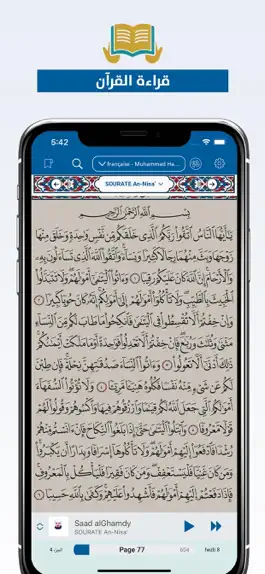 قراءة القرآن
5:42
française - Muhammad Ha...
SOURATE An-Nisa'
بِسْمِ ٱللَّهِ ٱلرَّحْمَٰنِ ٱلرَّحِيمِ
يَٰٓأَيُّهَا ٱلنَّاسُ ٱتَّقُوا۟ رَبَّكُمُ ٱلَّذِى خَلَقَكُم مِّن نَّفْسٍ وَٰحِدَةٍ وَخَلَقَ مِنْهَا
زَوْجَهَا وَبَثَّ مِنْهُمَا رِجَالًا كَثِيرًا وَنِسَآءً وَٱتَّقُوا۟ ٱللَّهَ ٱلَّذِى تَسَآءَلُونَ بِهِۦ
وَٱلْأَرْحَامَ إِنَّ ٱللَّهَ كَانَ عَلَيْكُمْ رَقِيبًا ١ وَءَاتُوا۟ ٱلْيَتَٰمَىٰٓ أَمْوَٰلَهُمْ وَلَا تَتَبَدَّلُوا۟
ٱلْخَبِيثَ بِٱلطَّيِّبِ وَلَا تَأْكُلُوٓا۟ أَمْوَٰلَهُمْ إِلَىٰٓ أَمْوَٰلِكُمْ إِنَّهُۥ كَانَ حُوبًا كَبِيرًا ٢
وَإِنْ خِفْتُمْ أَلَّا تُقْسِطُوا۟ فِى ٱلْيَتَٰمَىٰ فَٱنكِحُوا۟ مَا طَابَ لَكُم مِّنَ ٱلنِّسَآءِ
مَثْنَىٰ وَثُلَٰثَ وَرُبَٰعَ فَإِنْ خِفْتُمْ أَلَّا تَعْدِلُوا۟ فَوَٰحِدَةً أَوْ مَا مَلَكَتْ أَيْمَٰنُكُمْ
ذَٰلِكَ أَدْنَىٰٓ أَلَّا تَعُولُوا۟ ٣ وَءَاتُوا۟ ٱلنِّسَآءَ صَدُقَٰتِهِنَّ نِحْلَةً فَإِن طِبْنَ
لَكُمْ عَن شَىْءٍ مِّنْهُ نَفْسًا فَكُلُوهُ هَنِيٓـًٔا مَّرِيٓـًٔا ٤ وَلَا تُؤْتُوا۟ ٱلسُّفَهَآءَ
أَمْوَٰلَكُمُ ٱلَّتِى جَعَلَ ٱللَّهُ لَكُمْ قِيَٰمًا وَٱرْزُقُوهُمْ فِيهَا وَٱكْسُوهُمْ وَقُولُوا۟ لَهُمْ
قَوْلًا مَّعْرُوفًا ٥ وَٱبْتَلُوا۟ ٱلْيَتَٰمَىٰ حَتَّىٰٓ إِذَا بَلَغُوا۟ ٱلنِّكَاحَ فَإِنْ ءَانَسْتُم مِّنْهُمْ
رُشْدًا فَٱدْفَعُوٓا۟ إِلَيْهِمْ أَمْوَٰلَهُمْ وَلَا تَأْكُلُوهَآ إِسْرَافًا وَبِدَارًا أَن يَكْبَرُوا۟
وَمَن كَانَ غَنِيًّا فَلْيَسْتَعْفِفْ وَمَن كَانَ فَقِيرًا فَلْيَأْكُلْ بِٱلْمَعْرُوفِ
فَإِذَا دَفَعْتُمْ إِلَيْهِمْ أَمْوَٰلَهُمْ فَأَشْهِدُوا۟ عَلَيْهِمْ وَكَفَىٰ بِٱللَّهِ حَسِيبًا ٦
Saad alGhamdy
SOURATE An-Nisa'
الجزء 4 Page 77 604 حزب 8